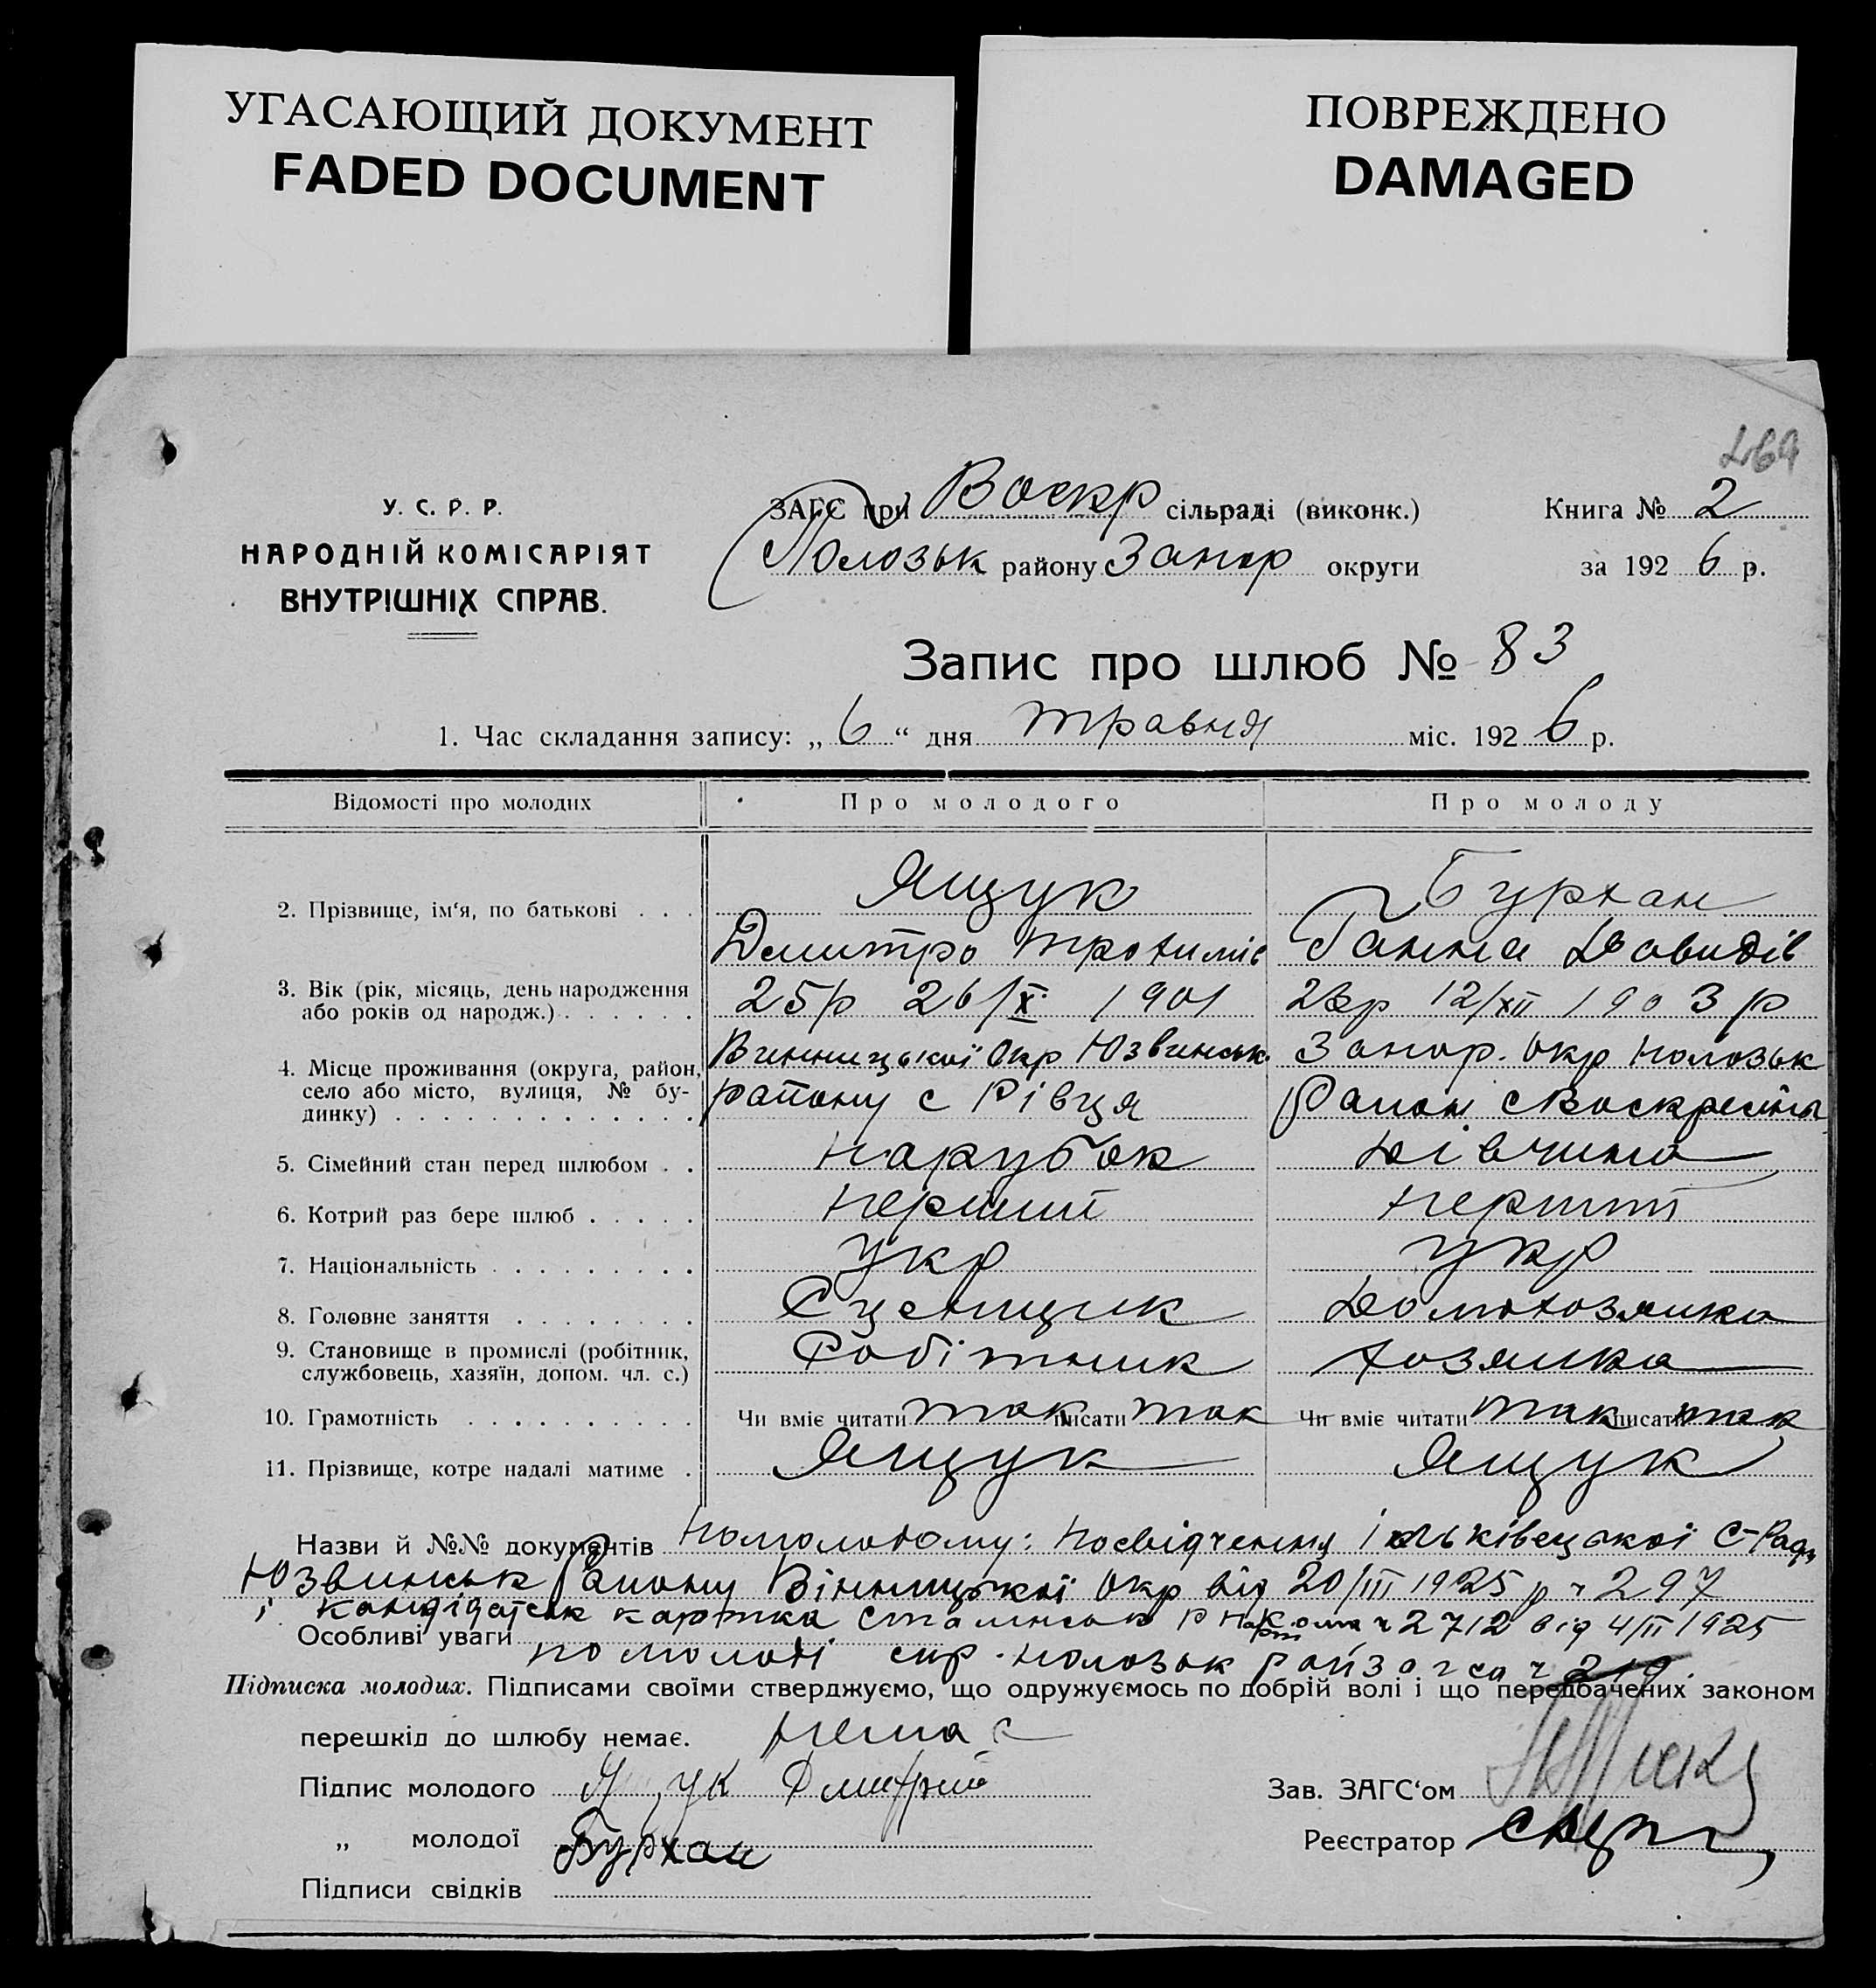 УГАСАЮЩИЙ ДОКУМЕНТ
FADED DOCUMENT
ПОВРЕЖДЕНО
DAMAGED
У. С. Р. Р.
НАРОДНІЙ КОМІСАРІЯТ
ВНУТРІШНІХ СПРАВ.
ЗАГС при Воскр сільраді (виконк.)
Полозьк району Запор округи
Книга № 2
за 1926 р.
Запис про шлюб № 83
1. Час складання запису: „6“ дня травня міс. 1926 р.
Відомості про молодих Про молодого Про молоду
2. Прізвище, ім‘я, по батькові . . . Ящук Бурхан
Дмитро Трохимів Ганна Давидів
3. Вік (рік, місяць, день народження або років од народж.) . . . . . . 25р 26/X 1901 12/XII 1903 р
4. Місце проживання (округа, район, село або місто, вулиця, № будинку) . . . . . . . . . . . . . Винницької Окр Юзвинськ Запор. Окр Полозьк
району с Рівця Район с Воскресінка
5. Сімейний стан перед шлюбом . . парубок дівчина
6. Котрий раз бере шлюб . . . . . перший перший
7. Національність . . . . . . . . . укр укр
8. Головне заняття . . . . . . . . Сцепщик Домохозяика
9. Становище в промислі (робітник, службовець, хазяїн, допом. чл. с.) Робітник хозяика
10. Грамотність . . . . . . . . . . Чи вміє читати так писати так Чи вміє читати так писати так
11. Прізвище, котре надалі матиме . Ящук Ящук
Назви й №№ документів по молодому: Посвідчення С-Ради
Юзвинськ Району Вінницької Окр від 20/III 1925 р ч 297
і кандідатськ картка Сталінськ ч 2712 від 4/II 1925
Особливі уваги по молоді Полозьк райзагса ч 219
Підписка молодих. Підписами своїми стверджуємо, що одружуємось по добрій волі і що передбачених законом
перешкід до шлюбу немає. немає
Підпис молодого Ящук Дмитрий
„ молодої Бурхан
Підписи свідків
Зав. ЗАГС‘ом
Реєстратор